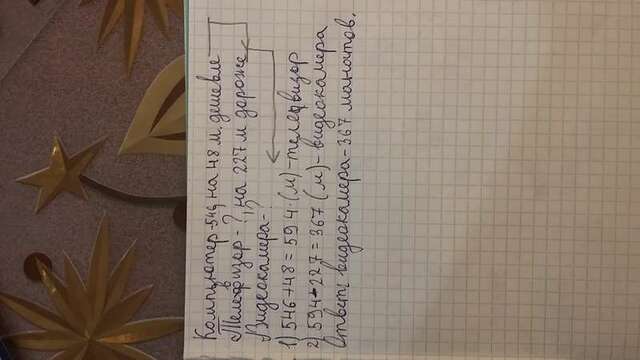 Компьютер-546, на 48 м. дешевле
Телевизор - ?, на 227 м дороже
Видеокамера-?
1) 546+48=594 (м)-телевизор
2) 594-227=367 (м)-видеокамера
Ответ: видеокамера-367 манатов.